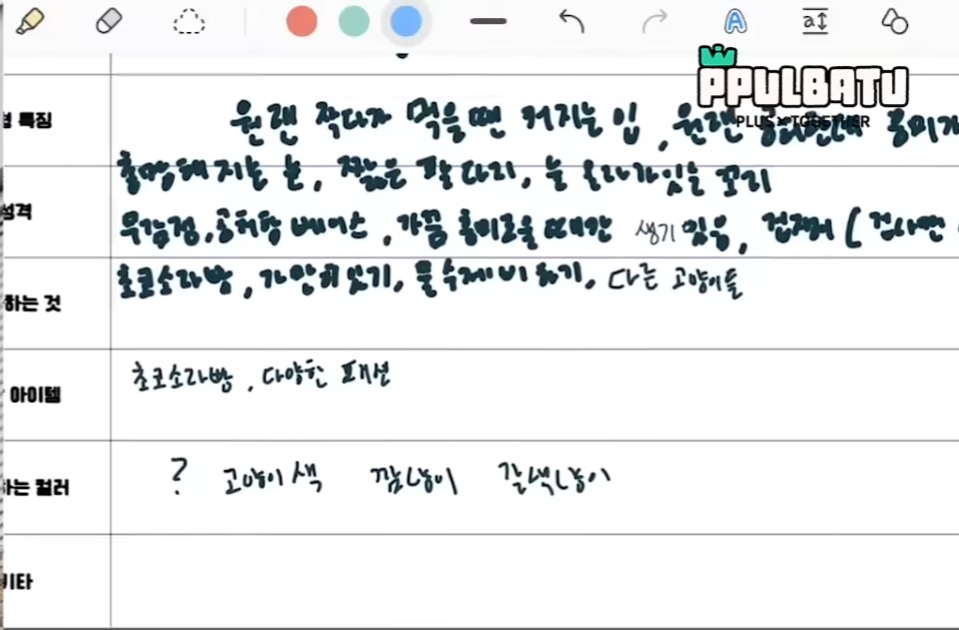 PPULBATU
PLUS X TOGETHER
특징
원랜 작다가 먹을땐 커지는 입, 원랜
초멍해지는 눈, 짧은 팔다리, 늘 올라가있는 꼬리
성격
무감정, 공허함 베이스, 가끔 흥미로울때만 생기 있음, 겁쟁이 (겁나면
하는 것
초코소라빵, 가만히 있기, 물수제비하기, 다른 고양이들
아이템
초코소라빵, 다양한 패션
하는 컬러
? 고양이색 깜냥이 갈색냥이
기타